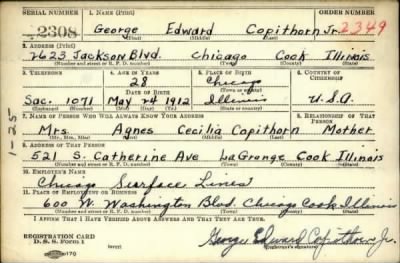 SERIAL NUMBER 1. NAME (Print) ORDER NUMBER
2308 George Edward Copithorn Jr. 2349
(First) (Middle) (Last)
2. ADDRESS (Print)
2623 Jackson Blvd. Chicago Cook Illinois
(Number and street or R. F. D. number) (Town) (County) (State)
3. TELEPHONE 4. AGE IN YEARS 5. PLACE OF BIRTH 6. COUNTRY OF CITIZENSHIP
28 Chicago
DATE OF BIRTH (Town or county)
Sac. 1071 May 24 1912 Illinois U.S.A.
(Exchange) (Number) (Mo.) (Day) (Yr.) (State or country)
7. NAME OF PERSON WHO WILL ALWAYS KNOW YOUR ADDRESS 8. RELATIONSHIP OF THAT PERSON
Mrs. Agnes Cecilia Copithorn Mother
(Mr., Mrs., Miss) (First) (Middle) (Last)
9. ADDRESS OF THAT PERSON
521 S. Catherine Ave LaGrange Cook Illinois
(Number and street or R. F. D. number) (Town) (County) (State)
10. EMPLOYER'S NAME
Chicago Surface Lines
11. PLACE OF EMPLOYMENT OR BUSINESS
600 W. Washington Blvd. Chicago Cook Illinois
(Number and street or R. F. D. number) (Town) (County) (State)
I AFFIRM THAT I HAVE VERIFIED ABOVE ANSWERS AND THAT THEY ARE TRUE.
REGISTRATION CARD
D. S. S. Form 1 George Edward Copithorn Jr.
(over) (Registrant's signature)
1-25